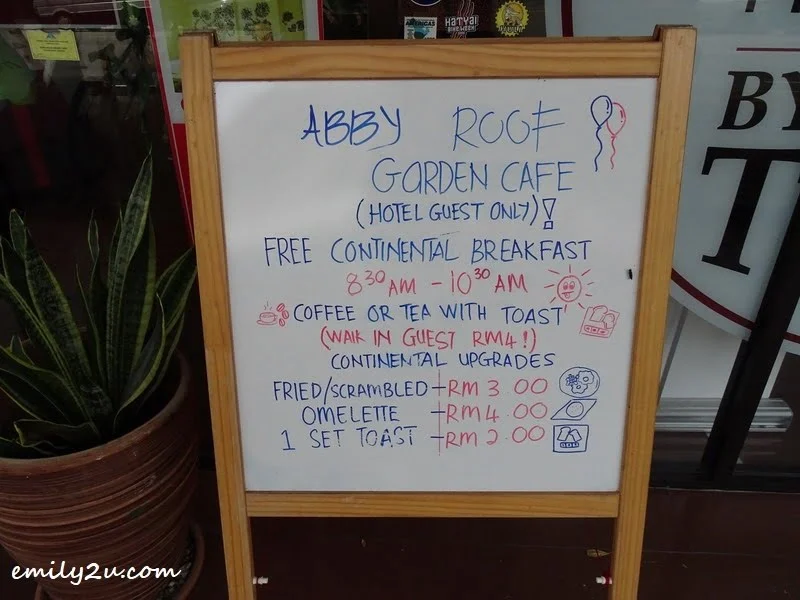 AMERICAS
HATYAI
BIKE WEEK
ABBY ROOF
GARDEN CAFE
(HOTEL GUEST ONLY)!
FREE CONTINENTAL BREAKFAST
8³⁰AM - 10³⁰ AM
COFFEE OR TEA WITH TOAST
(WALK IN GUEST RM4!)
CONTINENTAL UPGRADES
FRIED/SCRAMBLED - RM 3.00
OMELETTE - RM4.00
1 SET TOAST - RM 2.00
BY
T
emily2u.com